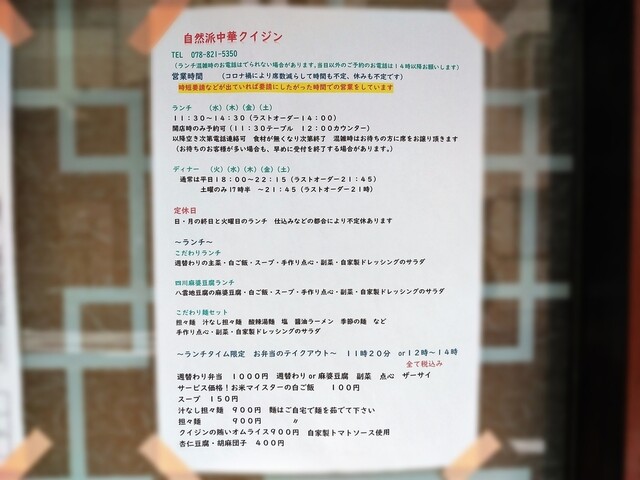 自然派中華クイジン
TEL 078-821-5350
(ランチ混雑時のお電話はでられない場合があります。当日以外のご予約のお電話は14時以降お願いします)
営業時間 (コロナ禍により席数減らして時間も不定、休みも不定です)
時短要請などが出ていれば要請にしたがった時間での営業をしています
ランチ (水)(木)(金)(土)
11:30～14:30(ラストオーダー14:00)
開店時のみ予約可(11:30テーブル 12:00カウンター)
以降空き次第電話連絡可 食材が無くなり次第終了 混雑時はお待ちの方に席をお譲り頂きます
(お待ちのお客様が多い場合も、早めに受付を終了する場合があります。)
ディナー (火)(水)(木)(金)(土)
通常は平日18:00～22:15(ラストオーダー21:45)
土曜のみ17時半 ～21:45(ラストオーダー21時)
定休日
日・月の終日と火曜日のランチ 仕込みなどの都合により不定休あります
～ランチ～
こだわりランチ
週替わりの主菜・白ご飯・スープ・手作り点心・副菜・自家製ドレッシングのサラダ
四川麻婆豆腐ランチ
八雲地豆腐の麻婆豆腐・白ご飯・スープ・手作り点心・副菜・自家製ドレッシングのサラダ
こだわり麺セット
担々麺 汁なし担々麺 酸辣湯麺 塩 醤油ラーメン 季節の麺 など
手作り点心・副菜・自家製ドレッシングのサラダ
～ランチタイム限定 お弁当のテイクアウト～ 11時20分 or12時～14時
全て税込み
週替わり弁当 1000円 週替わりor麻婆豆腐 副菜 点心 ザーサイ
サービス価格!お米マイスターの白ご飯 100円
スープ 150円
汁なし担々麺 900円 麺はご自宅で麺を茹でて下さい
担々麺 900円 〃
クイジンの賄いオムライス900円 自家製トマトソース使用
杏仁豆腐・胡麻団子 400円